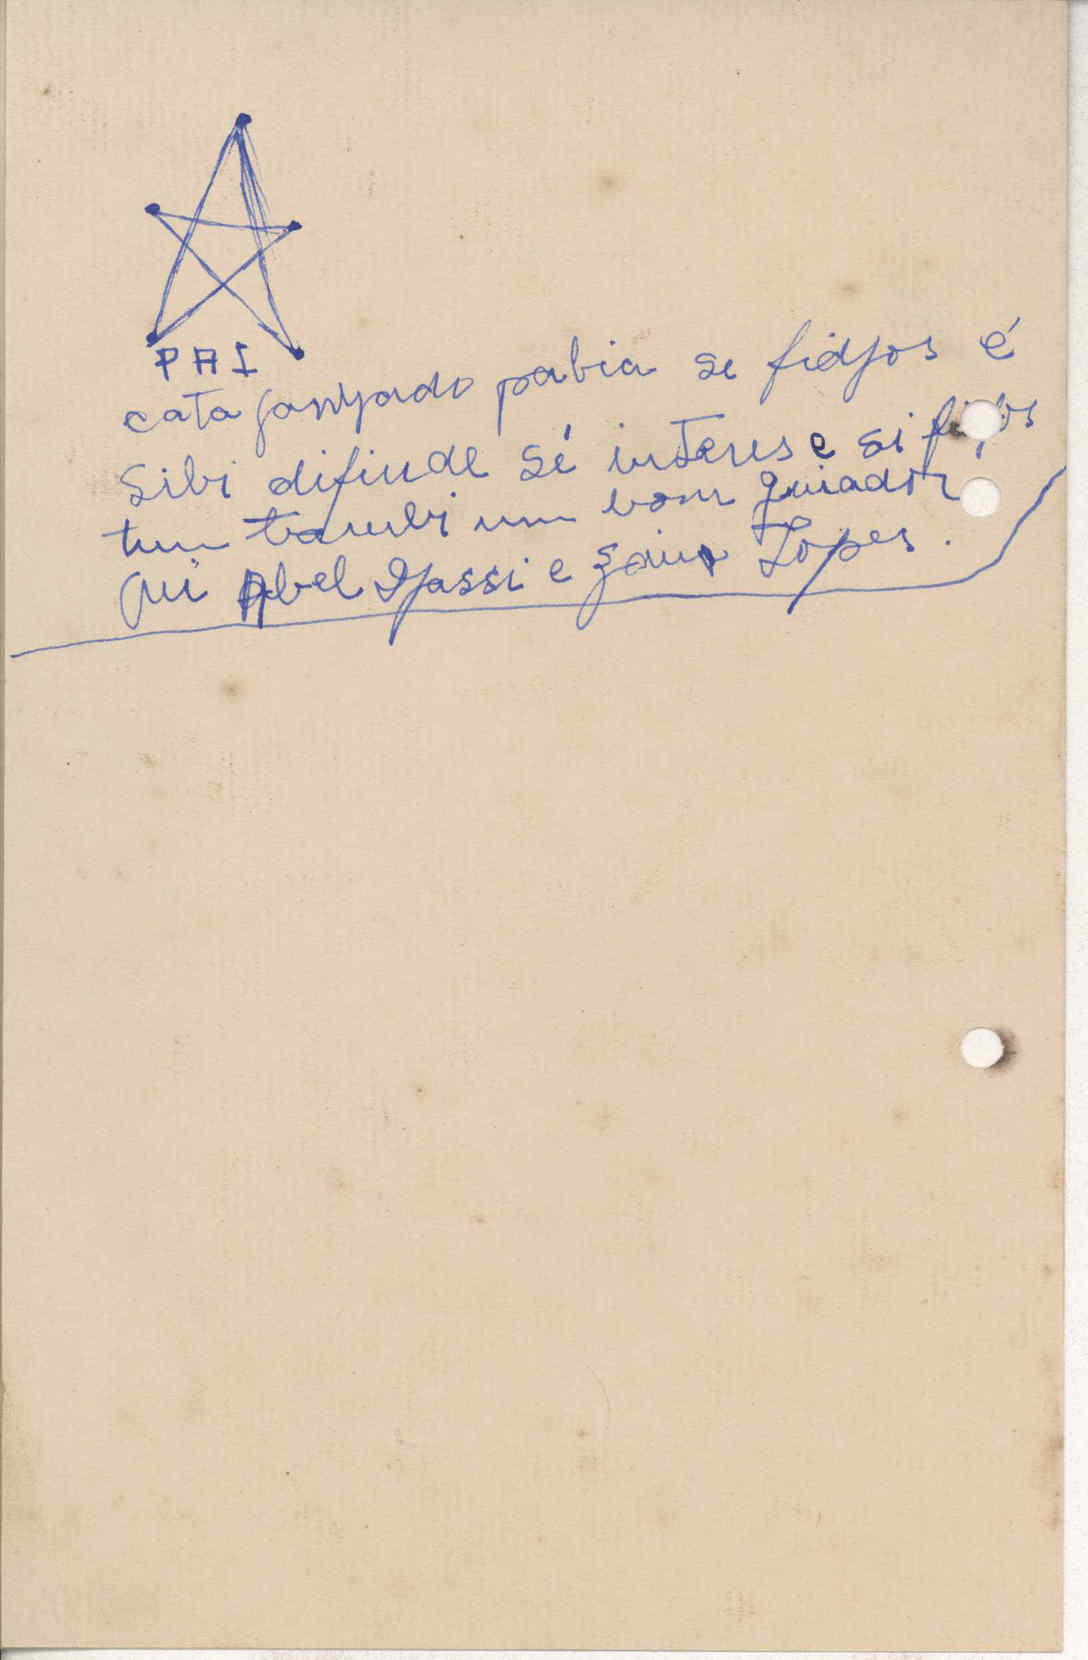 PAI
cata ganhado pabia se fidjos é
sibi difinde sé interese si
tun tambi um bom guiador
qui Abel Djassi e Lopes.